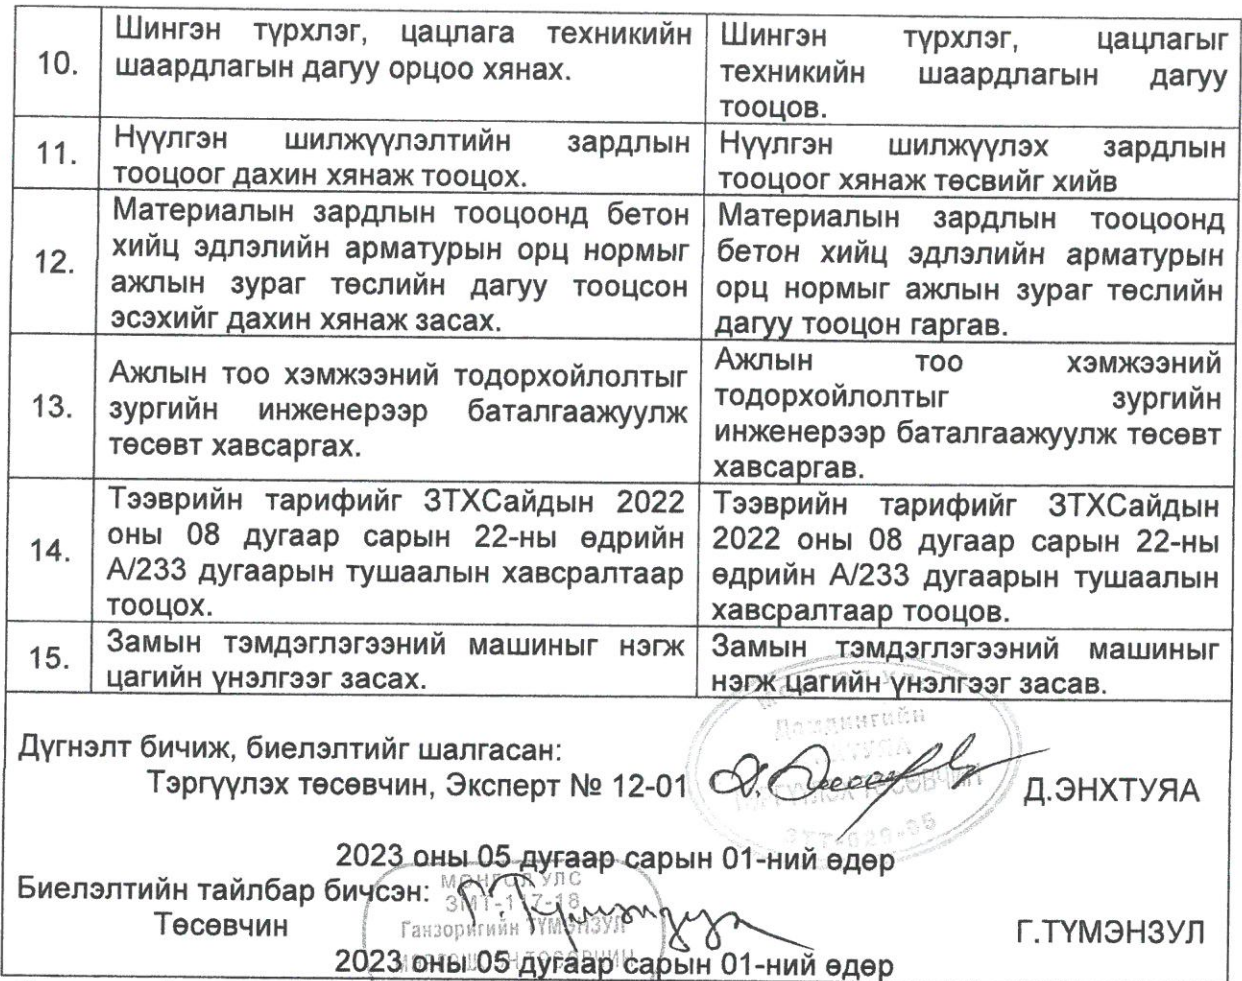 10.
Шингэн түрхлэг, цацлага техникийн
шаардлагын дагуу орцоо хянах.
Шингэн түрхлэг, цацлагыг
техникийн шаардлагын дагуу
тооцов.
11.
Нүүлгэн шилжүүлэлтийн зардлын
тооцоог дахин хянаж тооцох.
Нүүлгэн шилжүүлэх зардлын
тооцоог хянаж төсвийг хийв
12.
Материалын зардлын тооцоонд бетон
хийц эдлэлийн арматурын орц нормыг
ажлын зураг төслийн дагуу тооцсон
эсэхийг дахин хянаж засах.
Материалын зардлын тооцоонд
бетон хийц эдлэлийн арматурын
орц нормыг ажлын зураг төслийн
дагуу тооцон гаргав.
13.
Ажлын тоо хэмжээний тодорхойлолтыг
зургийн инженерээр баталгаажуулж
төсөвт хавсаргах.
Ажлын тоо хэмжээний
тодорхойлолтыг зургийн
инженерээр баталгаажуулж төсөвт
хавсаргав.
14.
Тээврийн тарифийг ЗТХСайдын 2022
оны 08 дугаар сарын 22-ны өдрийн
А/233 дугаарын тушаалын хавсралтаар
тооцох.
Тээврийн тарифийг ЗТХСайдын
2022 оны 08 дугаар сарын 22-ны
өдрийн А/233 дугаарын тушаалын
хавсралтаар тооцов.
15.
Замын тэмдэглэгээний машиныг нэгж
цагийн үнэлгээг засах.
Замын тэмдэглэгээний машиныг
нэгж цагийн үнэлгээг засав.
Дүгнэлт бичиж, биелэлтийг шалгасан:
Тэргүүлэх төсөвчин, Эксперт № 12-01 Д.ЭНХТУЯА
2023 оны 05 дугаар сарын 01-ний өдөр
Биелэлтийн тайлбар бичсэн:
МОНГОЛ УЛС
ЗМТ-117-18
Ганзоригийн ТҮМЭНЗУЛ
Төсөвчин Г.ТҮМЭНЗУЛ
2023 оны 05 дугаар сарын 01-ний өдөр